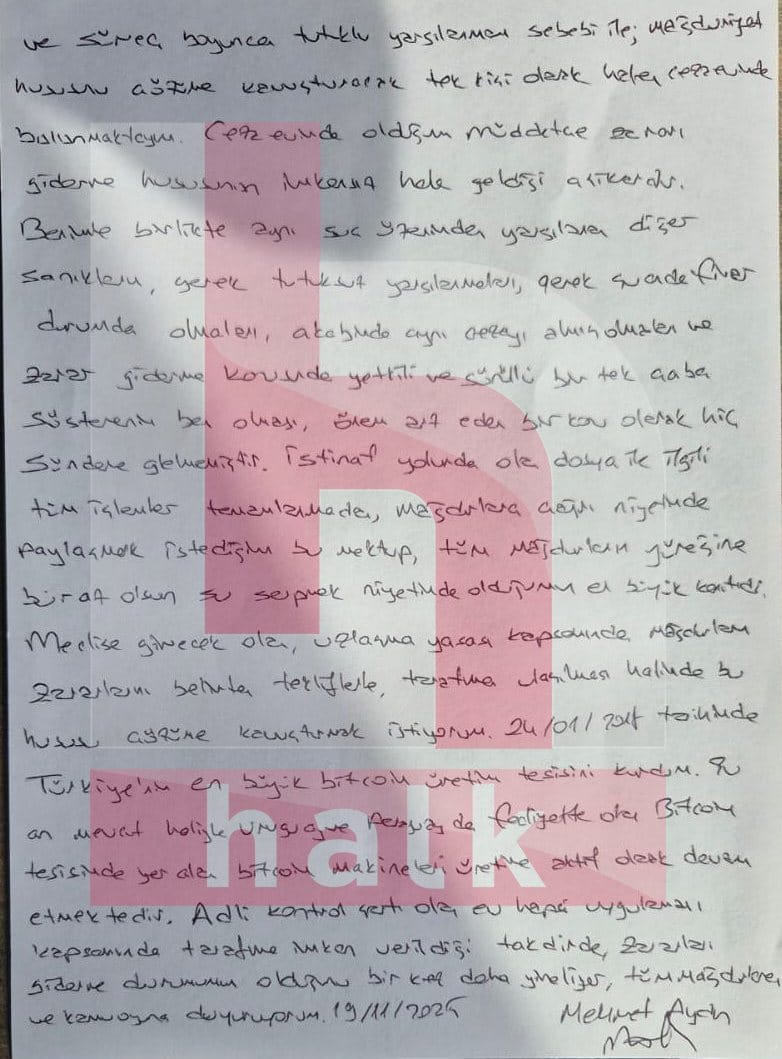 ve süreç boyunca tutuklu yargılanmam sebebi ile; mağduriyet
hususunu çözüme kavuşturacak tek kişi olarak halen cezaevinde
bulunmaktayım. Cezaevinde olduğum müddetçe zararı
giderme hususunun imkansız hale geldiği aşikardır.
Benimle birlikte aynı suç üzerinden yargılanan diğer
sanıkların, gerek tutuksuz yargılanmaları, gerek şuanda firar
durumda olmaları, akabinde aynı cezayı almış olmaları ve
zarar giderme konusunda yetkili ve gönüllü bir tek çaba
gösterenin ben olması, önem arz eden bir konu olarak hiç
gündeme gelmemiştir. İstinaf yolunda olan dosya ile ilgili
tüm işlemler tamamlanmadan, mağdurlara çağrı niyetinde
paylaşmak istediğim bu mektup, tüm mağdurların yüreğine
biraz olsun su serpmek niyetinde olduğumun en büyük kanıtıdır.
Meclise girecek olan, uzlaşma yasası kapsamında mağdurların
zararlarını belirten tekliflerle, tarafıma ulaşılması halinde bu
hususu çözüme kavuşturmak istiyorum. 24/01/2018 tarihinde
Türkiye'nin en büyük bitcoin üretim tesisini kurdum. Şu
an mevcut haliyle Uruguay ve Paraguay da faaliyette olan Bitcoin
tesisinde yer alan bitcoin makineleri üretime aktif olarak devam
etmektedir. Adli kontrol şartı olan ev hapsi uygulaması
kapsamında tarafıma imkan verildiği takdirde, zararları
giderme durumumun olduğunu bir kez daha yineliyor, tüm mağdurlara
ve kamuoyuna duyuruyorum. 19/11/2025
Mehmet Aydın
halk